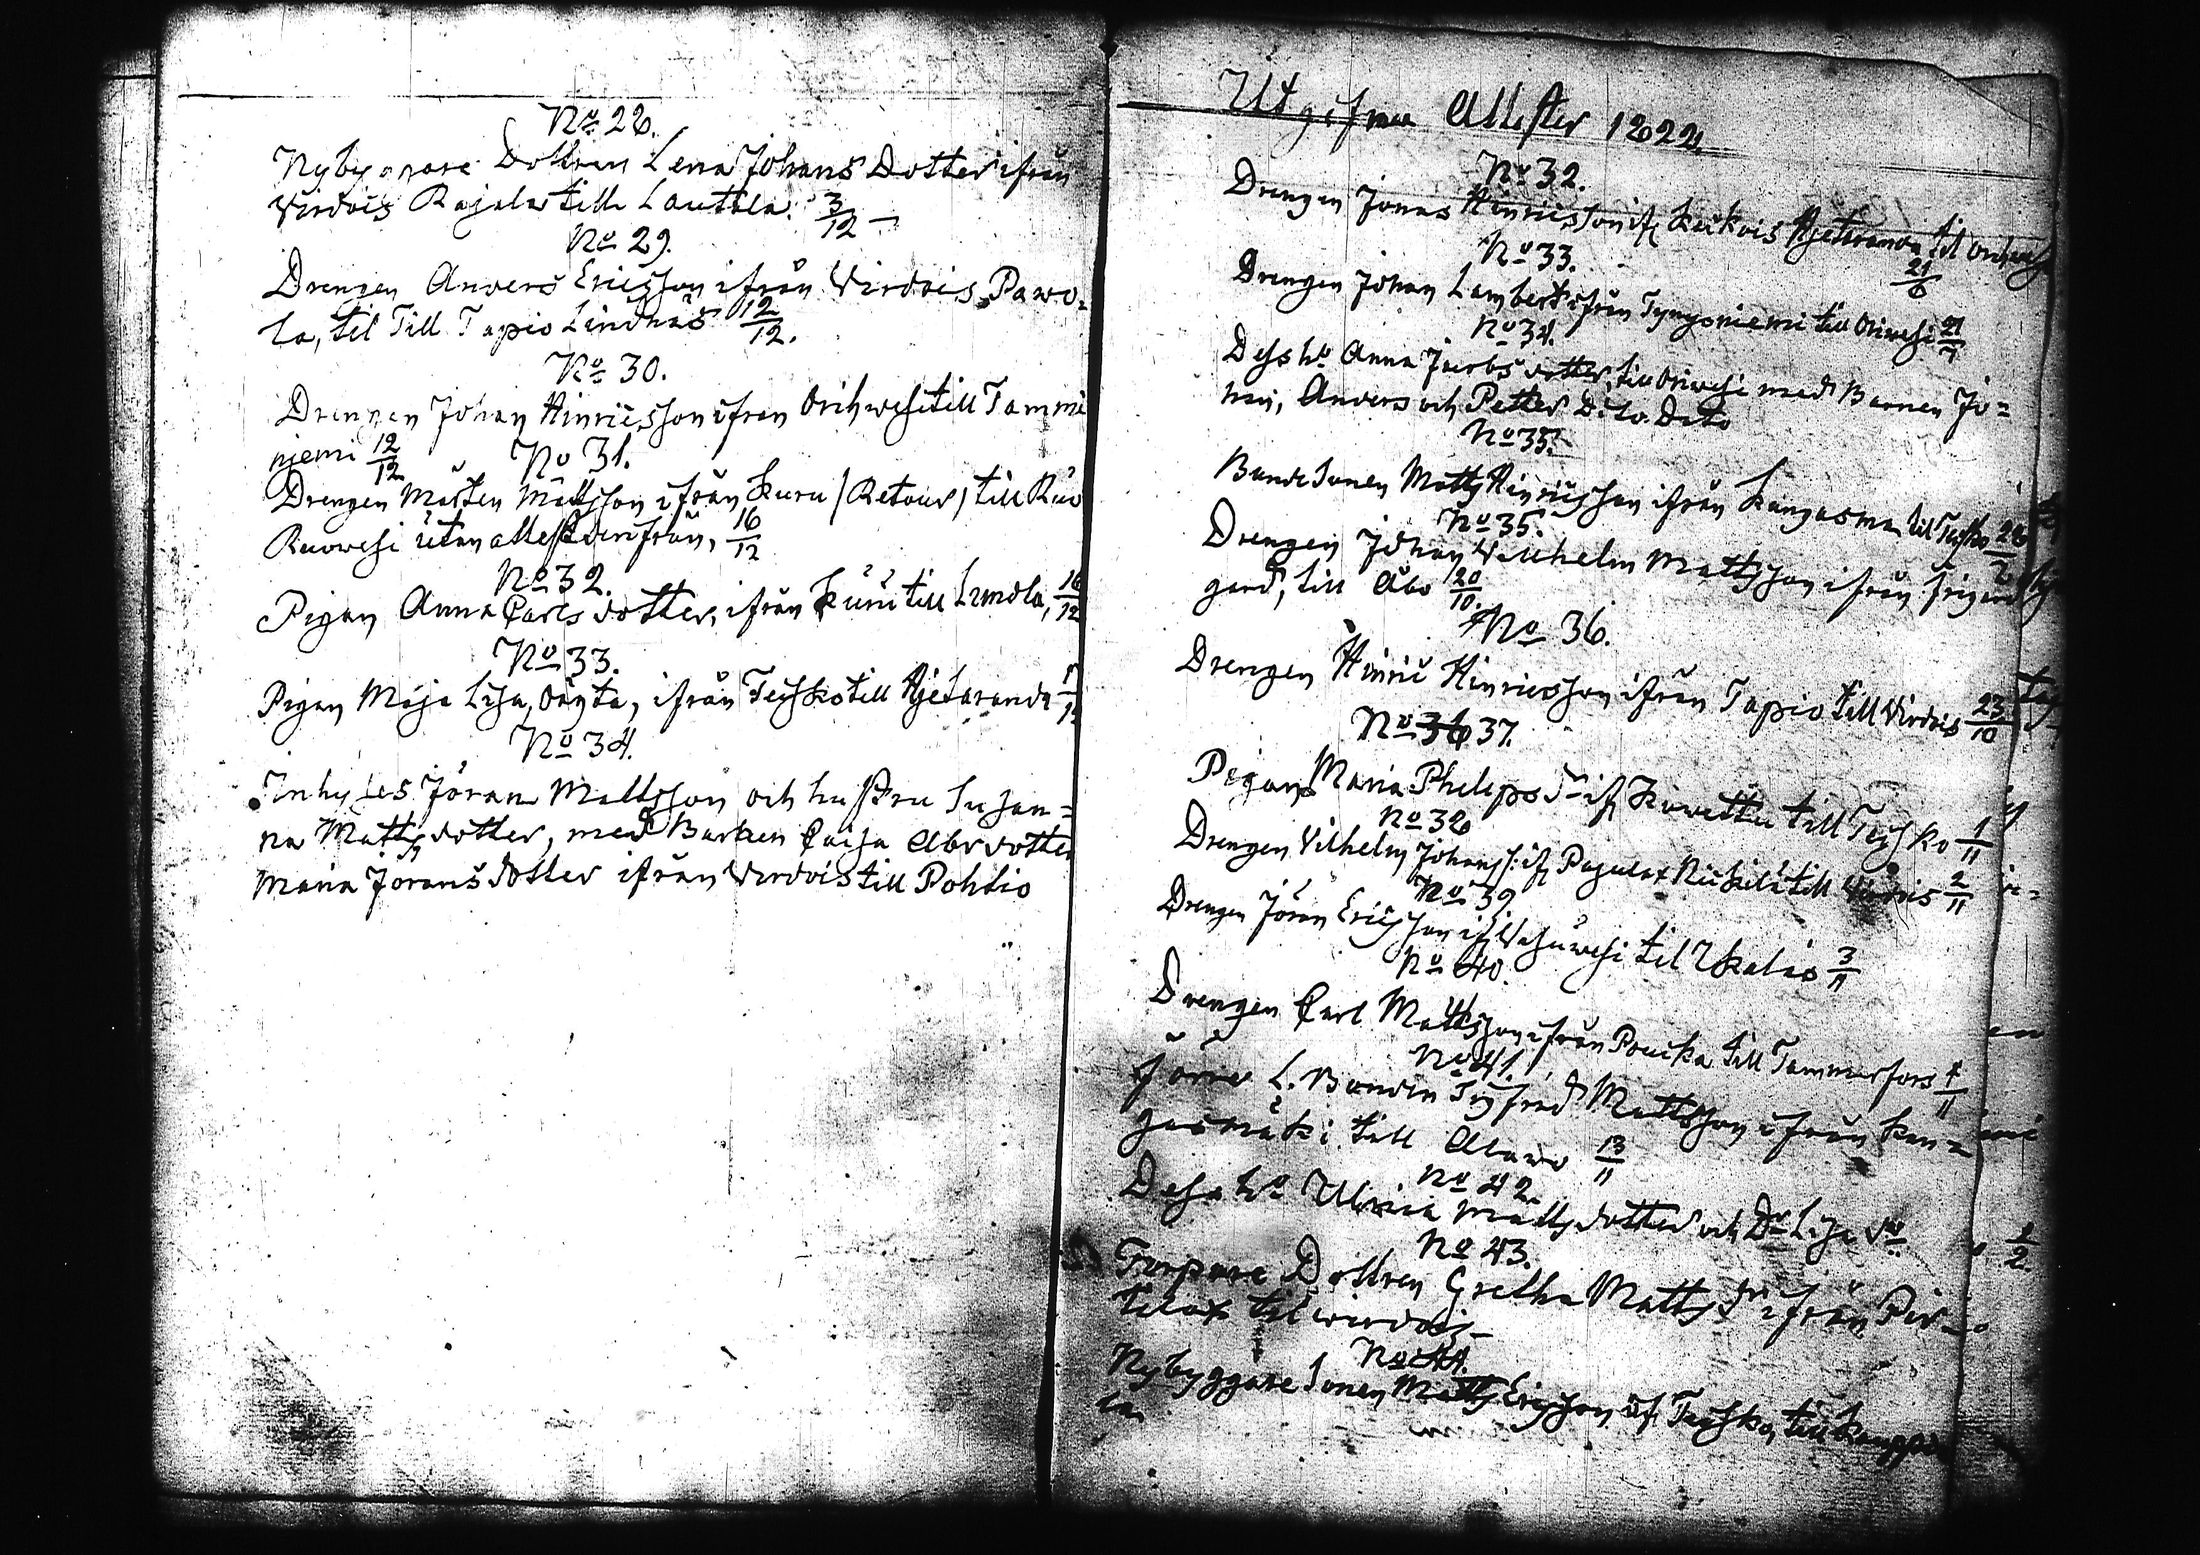 No 28.
Nybyggare Dottren Lena Johans Dotter ifrån
Virdois Rajala till Lauttala. 3/12
No 29.
Drengen Anders Ericsson ifrån Virdois Pawo=
la, til Till Tapio Lindnäs 12/12.
No 30.
Drengen Johan Hinricsson ifrån Orihwesi till Tammi
niemi 12/12
No 31.
Drengen Mårten Mattsson ifrån Kuru /Retour/ till Ruo
Ruowesi utan attest derifrån, 16/12
No 32.
Pigan Anna Carls dotter, ifrån Kuru till Lundla, 16/12
No 33.
Pigan Maja Lisa, ifrån Teisko till Hjetaranda
No 34.
Inhyses Jöran Mattsson och hustru Susan=
na Matts dotter, med Barnen Caisa Abr dotter
Maria Jörans Dotter ifrån Virdois till Pohtio
Utgifna Attester 1822.
No 32.
Drengen Jonas Hinricsson ifr Keikois Hjetaranda til Orihwesi
21/6
No 33.
Drengen Johan Lambert ifrån Tynyoniemi till Oriwesi 21/7
No 34.
Dess ho Anna Jacobs dotter, till Oriwesi med Barnen Jo=
han, Anders och Petter Dito Dito
No 35.
Bonde Sonen Matts Hinricsson ifrån Kangasma til Teisko 28
No 35.
Drengen Johan Willhelm Mattsson ifrån
gård, till Åbo 20/10.
No 36.
Drengen Hinric Hinricsson ifrån Tapio till Virdois 23/10
No 36 37.
Pigan Maria Philips Dr ifr Kowettu till Teisko 1/11
No 38
Drengen Vilhelm Johans S: ifr Pajulax Nickilä till Virdois 2/11
No 39
Drengen Jöran Ericsson ifr Wisuwesi til Ikalis 3/11
No 40.
Drengen Carl Mattsson ifrån Poucka till Tammerfors 4/11
No 41.
Förre L. Bonden Sigfred Mattsson ifrån Kan=
gasmäki till Alawo 13/11
No 42.
Dess ho Ulrica Matts dotter och Dr Lisa do
No 43.
Torpare Dottren Gretha Matts Dr ifrån Pir=
telax til wirdois
No 44.
Nybyggare Sonen Matts Ericsson ifr Teisko, till Kauppi
la